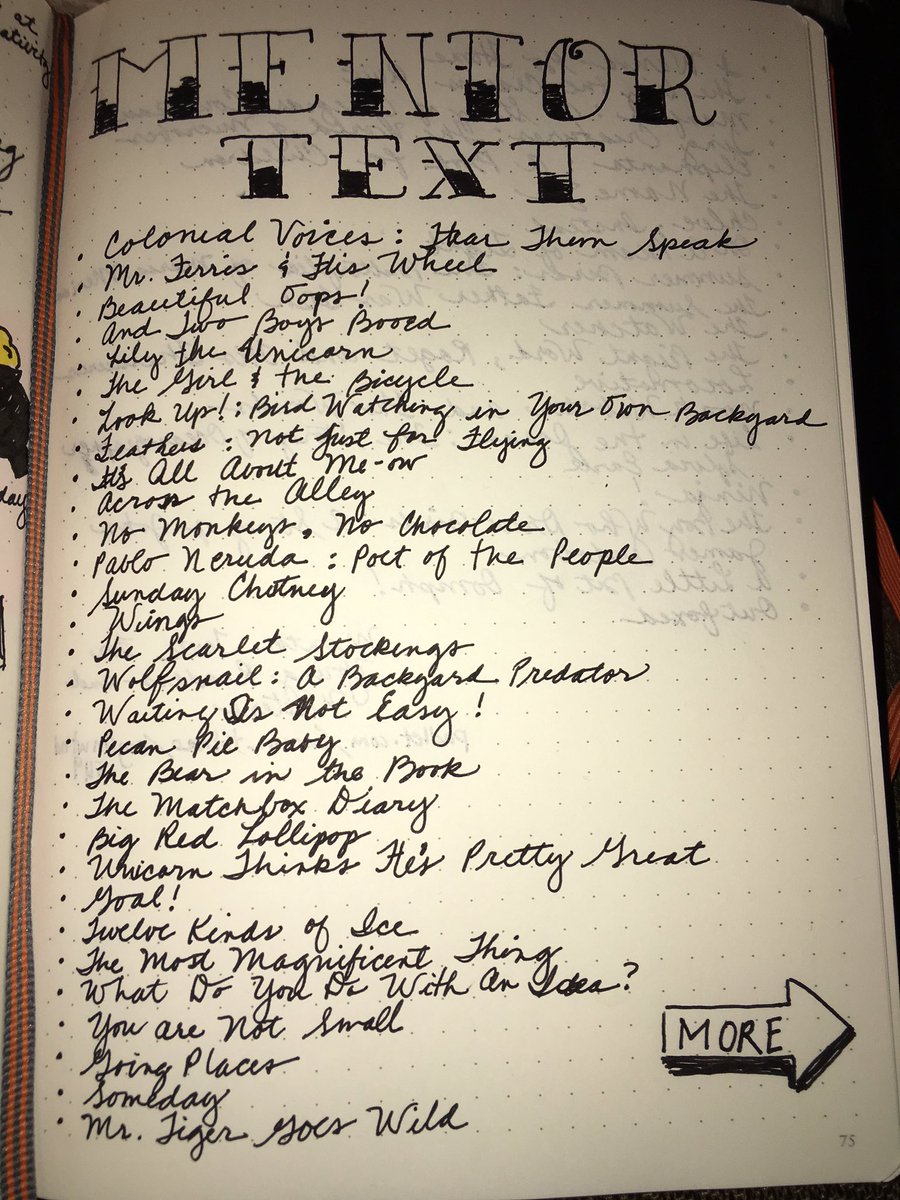 at
MENTOR
TEXT
• Colonial Voices: Hear Them Speak
• Mr. Ferris & His Wheel
• Beautiful Oops!
• And Two Boys Booed
• Lily the Unicorn
• The Girl & the Bicycle
• Look Up!: Bird Watching in Your Own Backyard
• Feathers: Not Just for Flying
• It's All About Me-ow
• Across the Alley
• No Monkeys, No Chocolate
• Pablo Neruda: Poet of the People
• Sunday Chutney
• Wings
• The Scarlet Stockings
• Wolfsnail: A Backyard Predator
• Waiting Is Not Easy!
• Pecan Pie Baby
• The Bear in the Book
• The Matchbox Diary
• Big Red Lollipop
• Unicorn Thinks He's Pretty Great
• Goal!
• Twelve Kinds of Ice
• The Most Magnificent Thing
• What Do You Do With An Idea?
• You are Not Small
• Going Places
• Someday
• Mr. Tiger Goes Wild
MORE
75